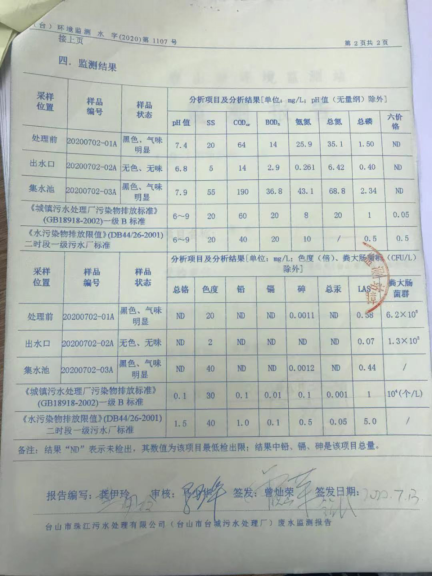 (台)环境监测 水 字(2020)第 1107 号 第 2 页共 2 页
接上页
四、监测结果
采样位置 样品编号 样品状态 分析项目及分析结果[单位: mg/L; pH值(无量纲)除外]
pH值 SS CODcr BOD₅ 氨氮 总氮 总磷 六价铬
处理前 20200702-01A 黑色、气味明显 7.4 20 64 14 25.9 35.1 1.50 ND
出水口 20200702-02A 无色、无味 6.8 5 14 2.9 0.261 6.42 0.40 ND
集水池 20200702-03A 黑色、气味明显 7.9 55 190 36.8 43.1 68.8 2.34 ND
《城镇污水处理厂污染物排放标准》(GB18918-2002)一级 B 标准 6~9 20 60 20 8 20 1 0.05
《水污染物排放限值》(DB44/26-2001)二时段一级污水厂标准 6~9 20 40 20 10 / 0.5 0.5
采样位置 样品编号 样品状态 分析项目及分析结果[单位: mg/L; 色度(倍)、粪大肠菌群(CFU/L)除外]
总铬 色度 铅 镉 砷 总汞 LAS 粪大肠菌群
处理前 20200702-01A 黑色、气味明显 ND 20 ND ND 0.0011 ND 0.58
出水口 20200702-02A 无色、无味 ND 2 ND ND ND ND 0.07
集水池 20200702-03A 黑色、气味明显 ND 40 ND ND 0.0012 ND 0.44 /
《城镇污水处理厂污染物排放标准》(GB18918-2002)一级 B 标准 0.1 30 0.1 0.01 0.1 0.001 1 10⁴(个/L)
《水污染物排放限值》(DB44/26-2001)二时段一级污水厂标准 1.5 40 1.0 0.1 0.5 0.05 5.0 /
备注: 结果“ND”表示未检出,其数值为该项目最低检出限; 结果中铅、镉、砷是该项目总量。
报告编写: 龚伊玲 审核: 签发: 曾灿荣 签发日期: 2020.7.13
台山市珠江污水处理有限公司(台山市台城污水处理厂)废水监测报告